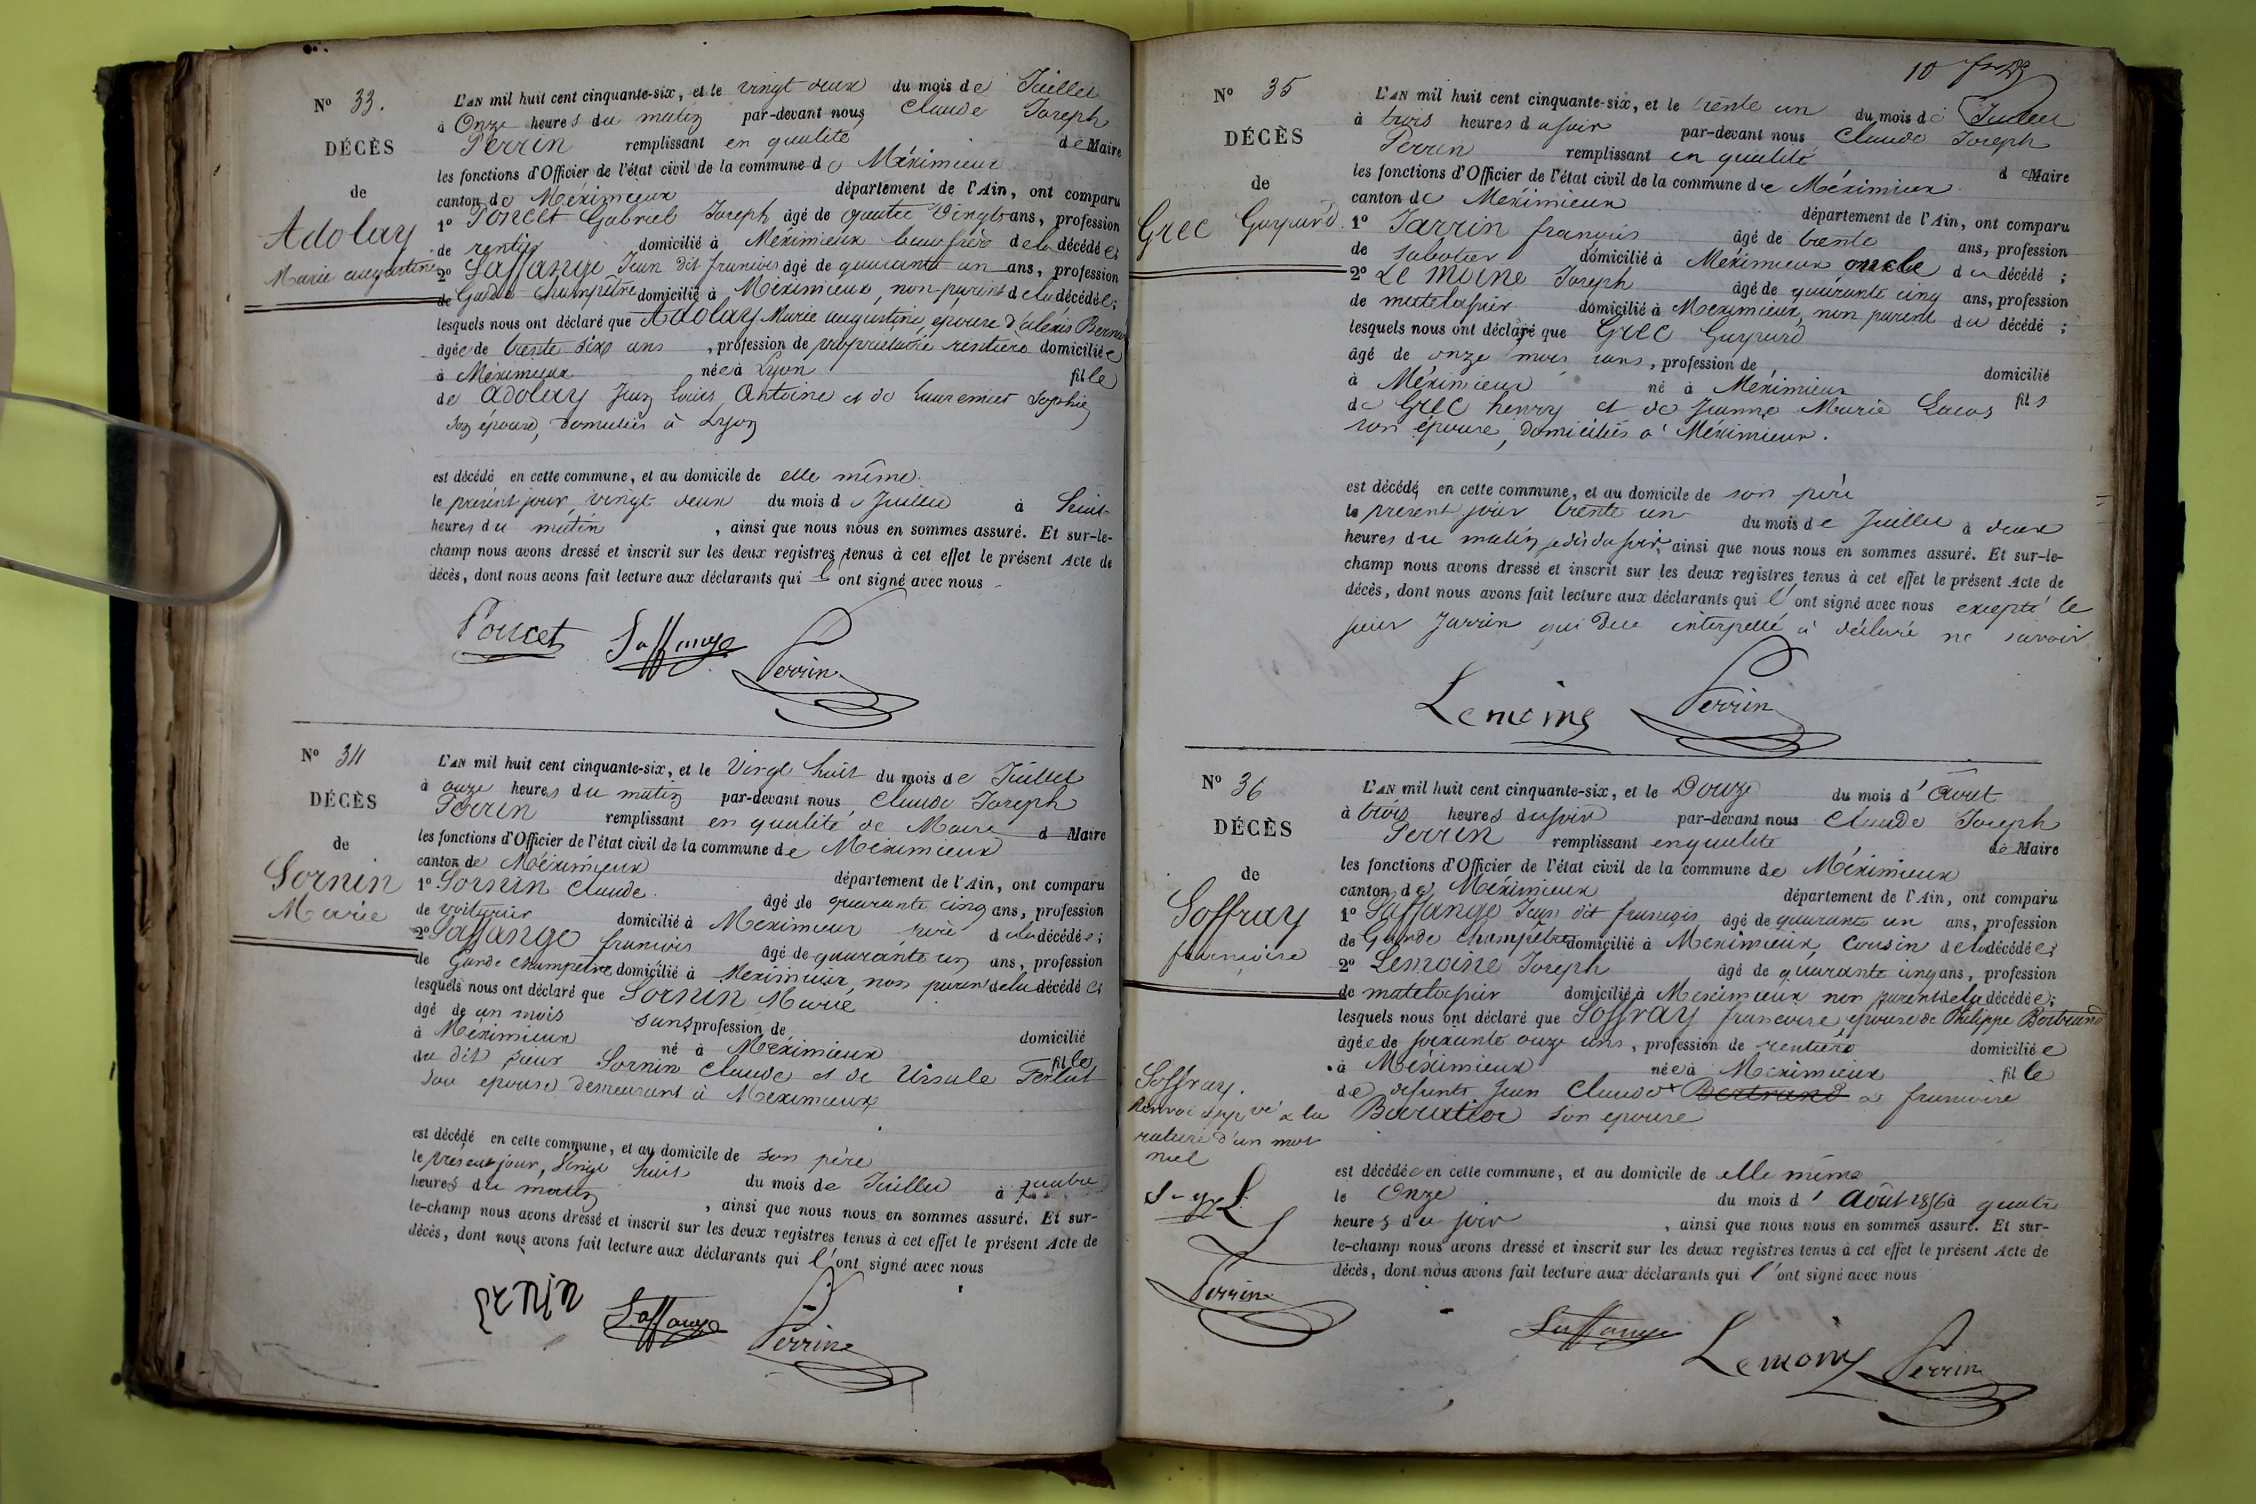 N° 33.
DÉCÈS
de
Adolay
Marie augustine
L'AN mil huit cent cinquante-six, et le vingt deux du mois de Juillet
à Onze heures du matin par-devant nous Claude Joseph
Perrin remplissant en qualité de Maire
les fonctions d'Officier de l'état civil de la commune de Méximieux
canton de Méximieux département de l'Ain, ont comparu
1° Poncet Gabriel Joseph âgé de quatre vingt ans, profession
de rentier domicilié à Méximieux beau frère de la décédée;
2° Laffange Jean dit francois âgé de quarante un ans, profession
de Garde champêtre domicilié à Méximieux, non parent de la décédée;
lesquels nous ont déclaré que Adolay Marie augustine, épouse d'aléxis
âgée de trente six ans, profession de propriétaire rentière domiciliée
à Méximieux née à Lyon fille
de Adolay Jean louis Antoine et de Sophie
son épouse, domiciliés à Lyon
est décédé en cette commune, et au domicile de elle même
le présent jour, vingt deux du mois de Juillet à
heures du matin, ainsi que nous nous en sommes assuré. Et sur-le-
champ nous avons dressé et inscrit sur les deux registres tenus à cet effet le présent Acte de
décès, dont nous avons fait lecture aux déclarants qui l'ont signé avec nous
Poncet Laffange Perrin
N° 34
DÉCÈS
de
Sornin
Marie
L'AN mil huit cent cinquante-six, et le Vingt huit du mois de Juillet
à onze heures du matin par-devant nous Claude Joseph
Perrin remplissant en qualité de Maire d Maire
les fonctions d'Officier de l'état civil de la commune de Méximieux
canton de Méximieux département de l'Ain, ont comparu
1° Sornin Claude âgé de quarante cinq ans, profession
de voiturier domicilié à Meximieux père de la décédée;
2° Laffange francois âgé de quarante un ans, profession
de Garde champêtre domicilié à Meximieux, non parent de la décédée
lesquels nous ont déclaré que Sornin Marie
âgé de un mois sans profession de domicilié
à Méximieux né à Méximieux fille
du dit sieur Sornin Claude et de Ursule
son epouse demeurant à Méximieux
est décédé en cette commune, et au domicile de son père
le présent jour, Vingt huit du mois de Juillet à quatre
heures du matin, ainsi que nous nous en sommes assuré. Et sur-
le-champ nous avons dressé et inscrit sur les deux registres tenus à cet effet le présent Acte de
décès, dont nous avons fait lecture aux déclarants qui l'ont signé avec nous
Laffange Perrin
10
N° 35
DÉCÈS
de
Grec Gaspard
L'AN mil huit cent cinquante-six, et le trente un du mois de Juillet
à trois heures du soir par-devant nous Claude Joseph
Perrin remplissant en qualité de Maire
les fonctions d'Officier de l'état civil de la commune de Méximieux
canton de Méximieux département de l'Ain, ont comparu
1° Jarrin francois âgé de trente ans, profession
de sabotier domicilié à Méximieux oncle du décédé;
2° Le Moine Joseph âgé de quarante cinq ans, profession
de matelassier domicilié à Meximieux, non parent du décédé;
lesquels nous ont déclaré que Grec Gaspard
âgé de onze mois ans, profession de domicilié
à Méximieux né à Méximieux fils
de Grec henry et de Jeanne Marie
son épouse, domiciliés à Méximieux.
est décédé, en cette commune, et au domicile de son père
le présent jour trente un du mois de Juillet à deux
heures du matin je dis du soir, ainsi que nous nous en sommes assuré. Et sur-le-
champ nous avons dressé et inscrit sur les deux registres tenus à cet effet le présent Acte de
décès, dont nous avons fait lecture aux déclarants qui l'ont signé avec nous excepté le
sieur Jarrin qui de ce interpellé à déclaré ne savoir
Lemoine Perrin
N° 36
DÉCÈS
de
Soffray
francoise
L'AN mil huit cent cinquante-six, et le Douze du mois d'Aout
à trois heures du soir par-devant nous Claude Joseph
Perrin remplissant en qualité de Maire
les fonctions d'Officier de l'état civil de la commune de Méximieux
canton de Méximieux département de l'Ain, ont comparu
1° Laffange Jean dit françois âgé de quarante un ans, profession
de Garde champêtre domicilié à Meximieux cousin de la décédée;
2° Lemoine Joseph âgé de quarante cinq ans, profession
de matelassier domicilié à Meximieux non parent de la décédée;
lesquels nous ont déclaré que Soffray francoise, épouse de Philippe Bertrand
âgée de soixante onze ans, profession de rentière domiciliée
à Méximieux née à Meximieux fille
de défunts Jean Claude Bertrand & francoise
son epouse
Soffray.
Renvoi appvé & la
rature d'un mot
nul
Perrin
est décédée en cette commune, et au domicile de elle même
le Onze du mois d'Août 1856 à quatre
heures du soir, ainsi que nous nous en sommes assuré. Et sur-
le-champ nous avons dressé et inscrit sur les deux registres tenus à cet effet le présent Acte de
décès, dont nous avons fait lecture aux déclarants qui l'ont signé avec nous
Laffange Lemoine Perrin